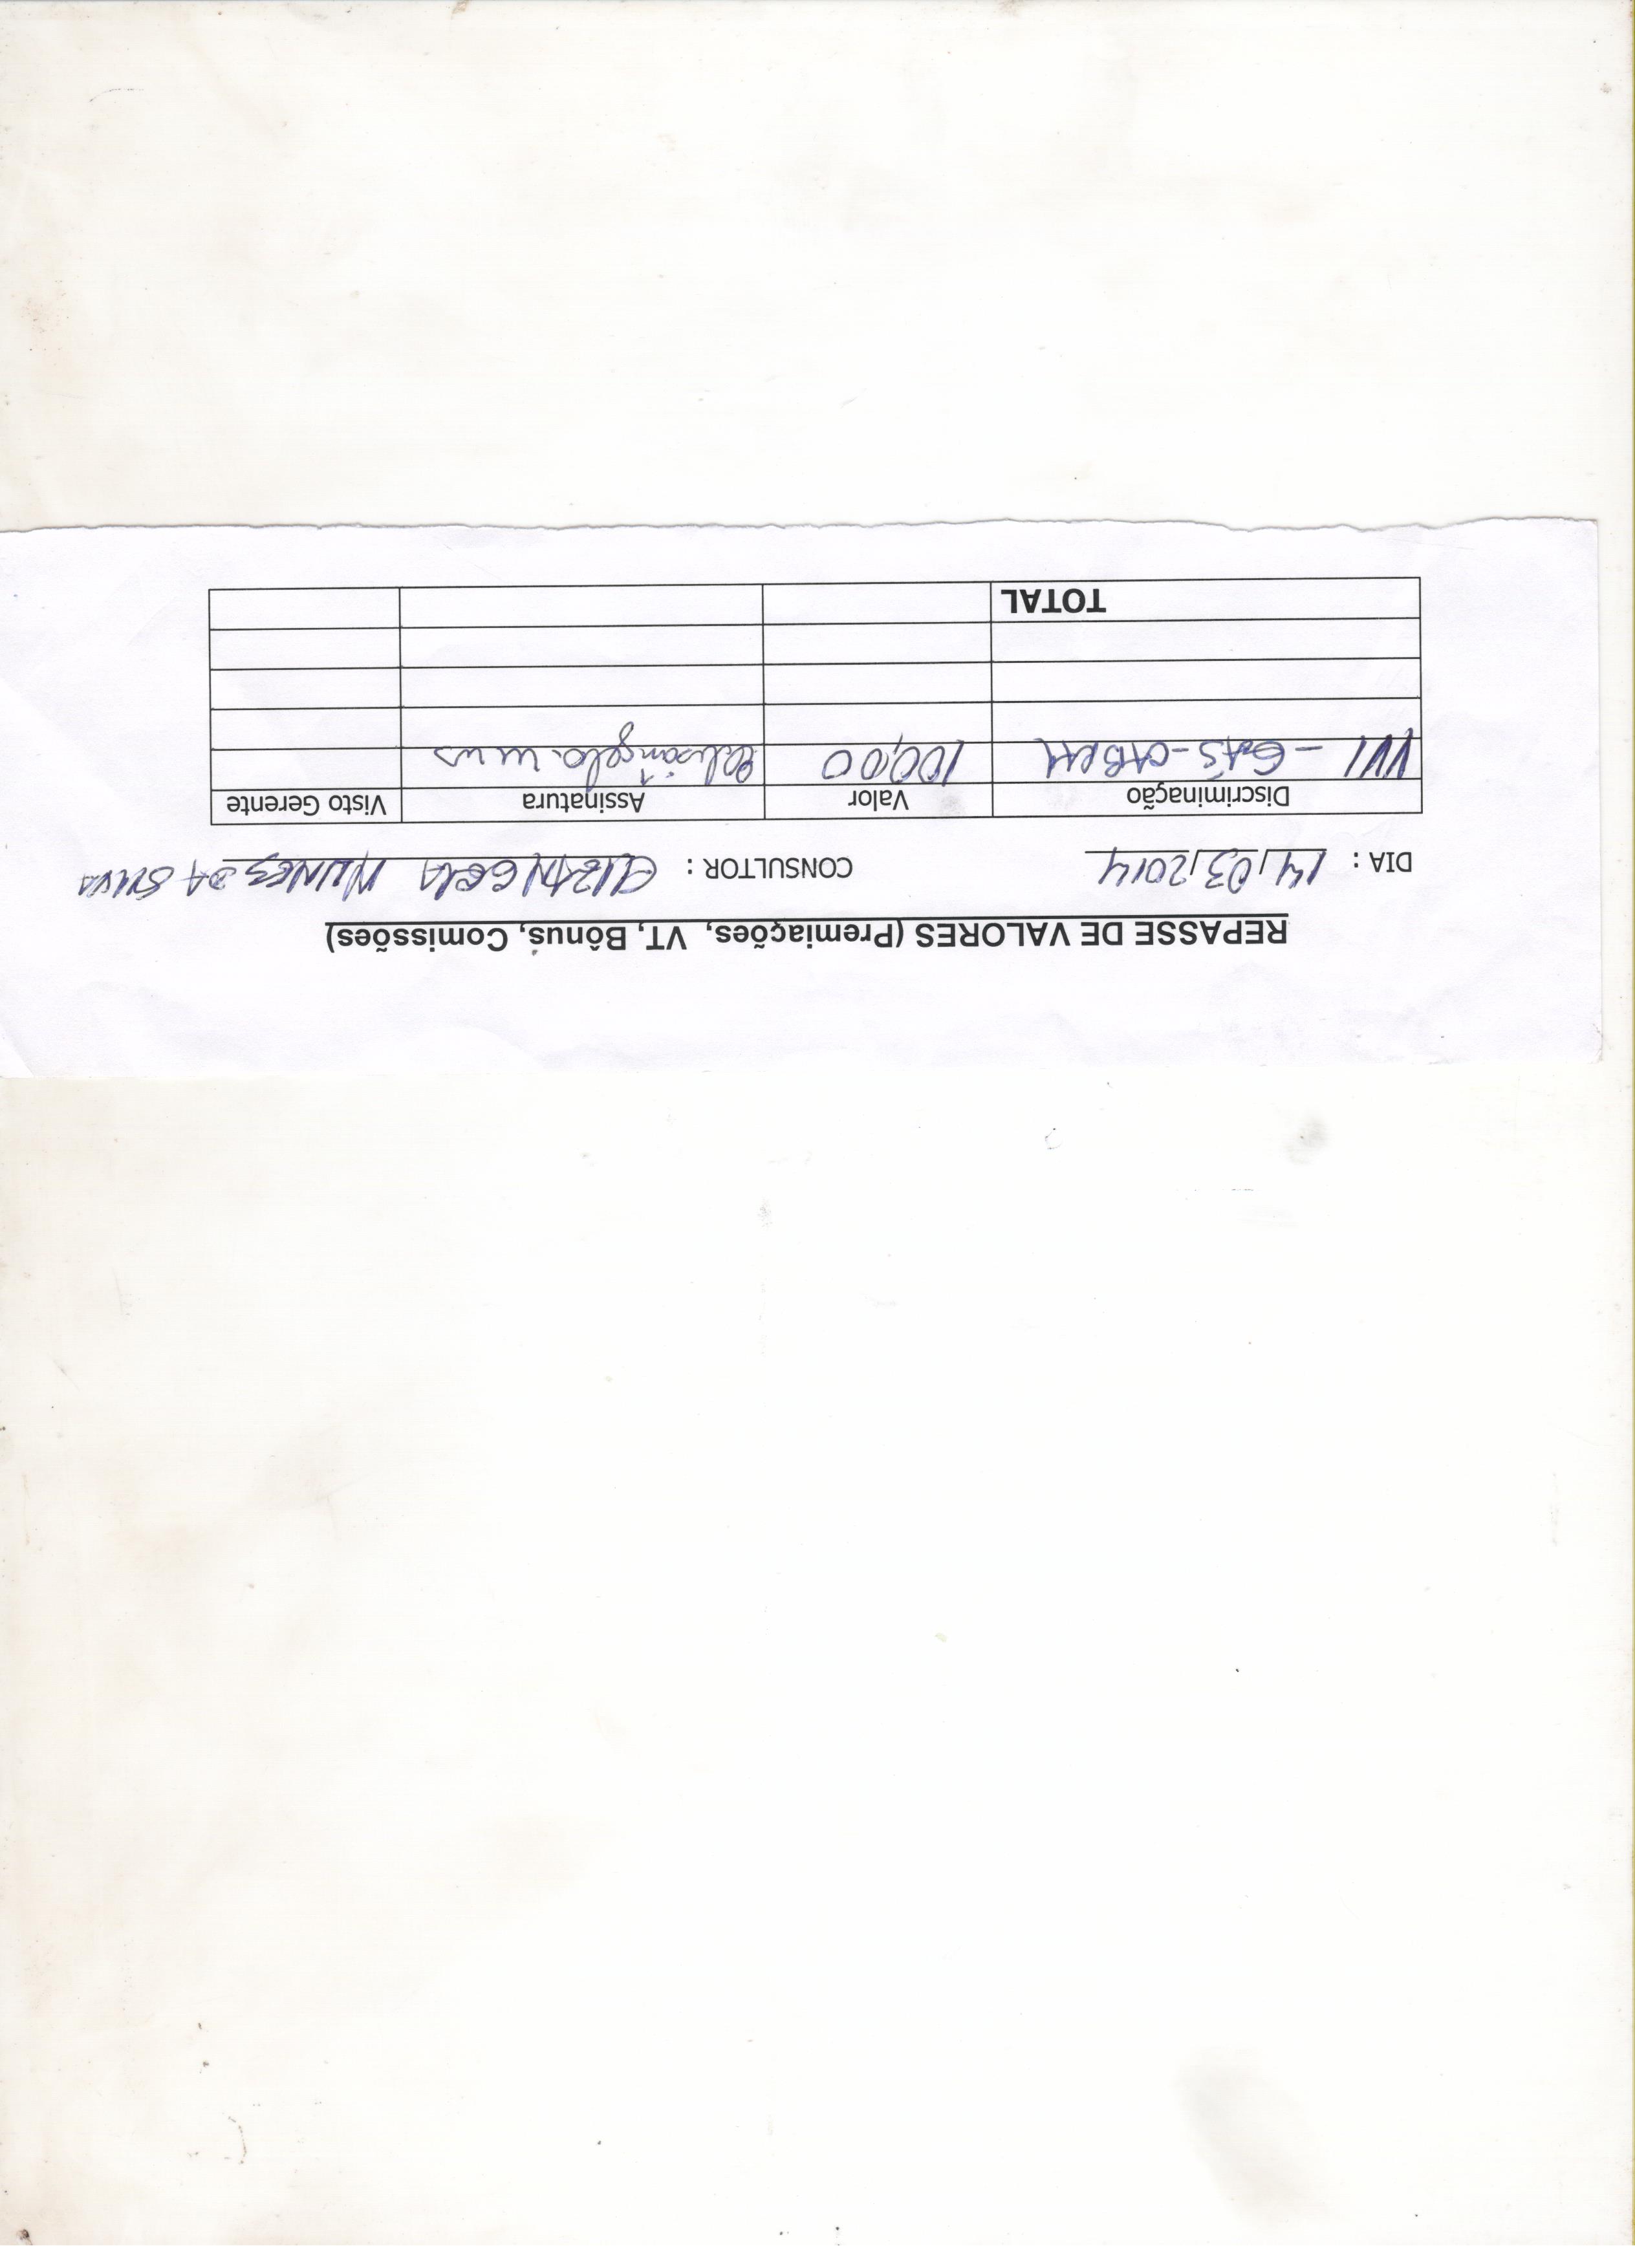 REPASSE DE VALORES (Premiações, VT, Bônus, Comissões)
DIA : 14/03/2014 CONSULTOR : ELIZANGELA NUNES DA SILVA
Discriminação Valor Assinatura Visto Gerente
VVI - GÁS - CABRAL 100,00 Elisângela
TOTAL